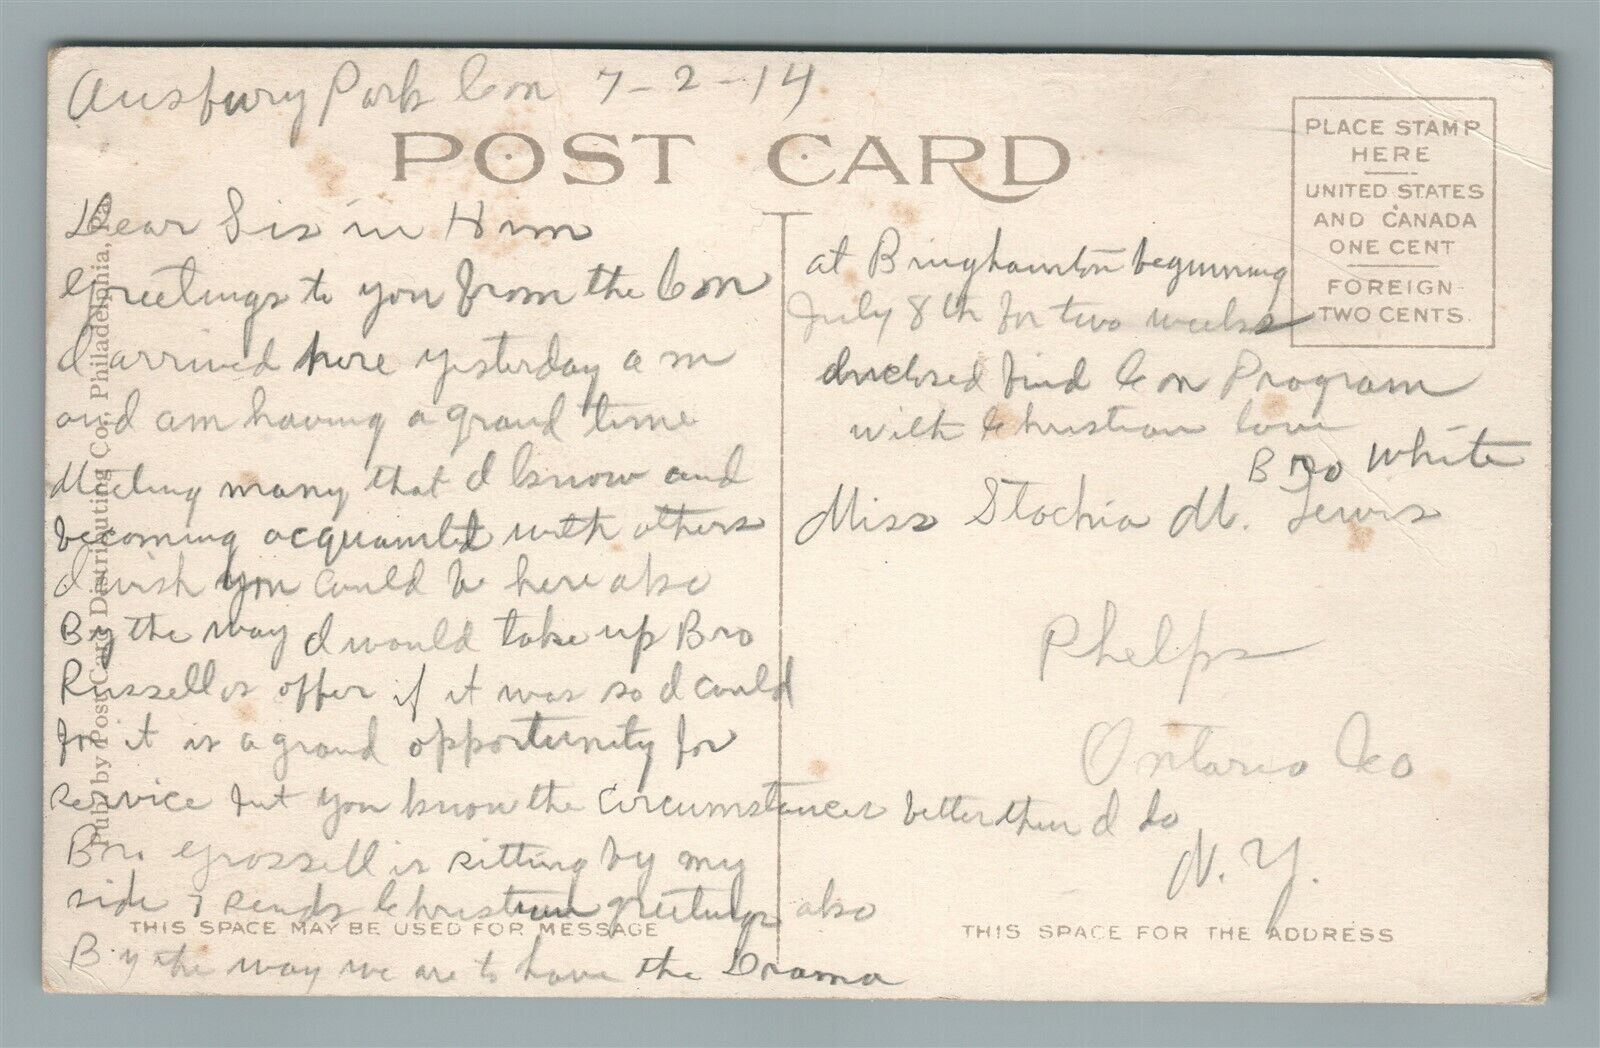 Ausbury Park Con 7-2-14
POST CARD
PLACE STAMP
HERE
UNITED STATES
AND CANADA
ONE CENT
FOREIGN
TWO CENTS.
Dear Sis in Him
Greetings to you from the Con
I arrived here yesterday a m
and am having a grand time
Meeting many that I know and
becoming acquainted with others
I wish you could be here also
By the way I would take up Bro
Russells offer if it was so I could
for it is a grand opportunity for
service but you know the circumstances better then I do
Bro. Grossell is sitting by my
side & sends Christian greetings also
By the way we are to have the Drama
at Binghamton beginning
July 8th for two weeks
Enclosed find Con Program
with Christian love
Bro White
Miss Stochia M. Lewis
Phelps
Ontario Co
N. Y.
THIS SPACE MAY BE USED FOR MESSAGE
THIS SPACE FOR THE ADDRESS
Pub. by Post Card Distributing Co., Philadelphia, Pa.